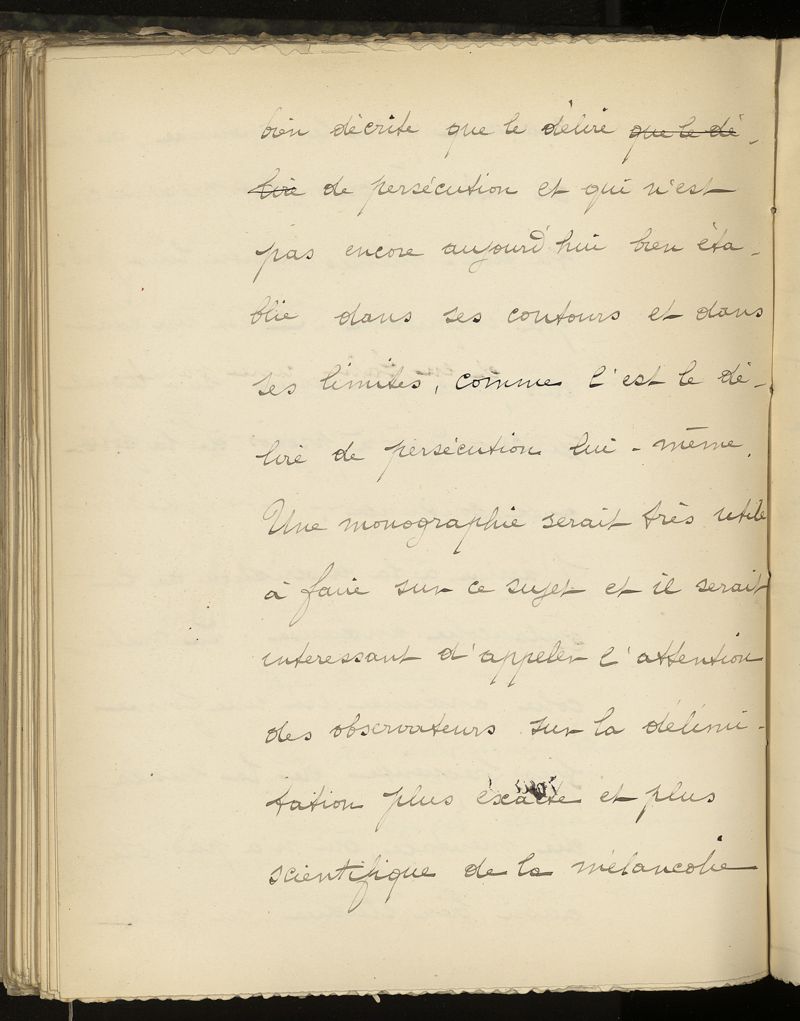 bien décrite que le délire que le dé-
lire de persécution et qui n'est
pas encore aujourd'hui bien éta-
blie dans ses contours et dans
ses limites, comme l'est le dé-
lire de persécution lui-même.
Une monographie serait très utile
à faire sur ce sujet et il serait
intéressant d'appeler l'attention
des observateurs sur la délimi-
tation plus exacte et plus
scientifique de la mélancolie